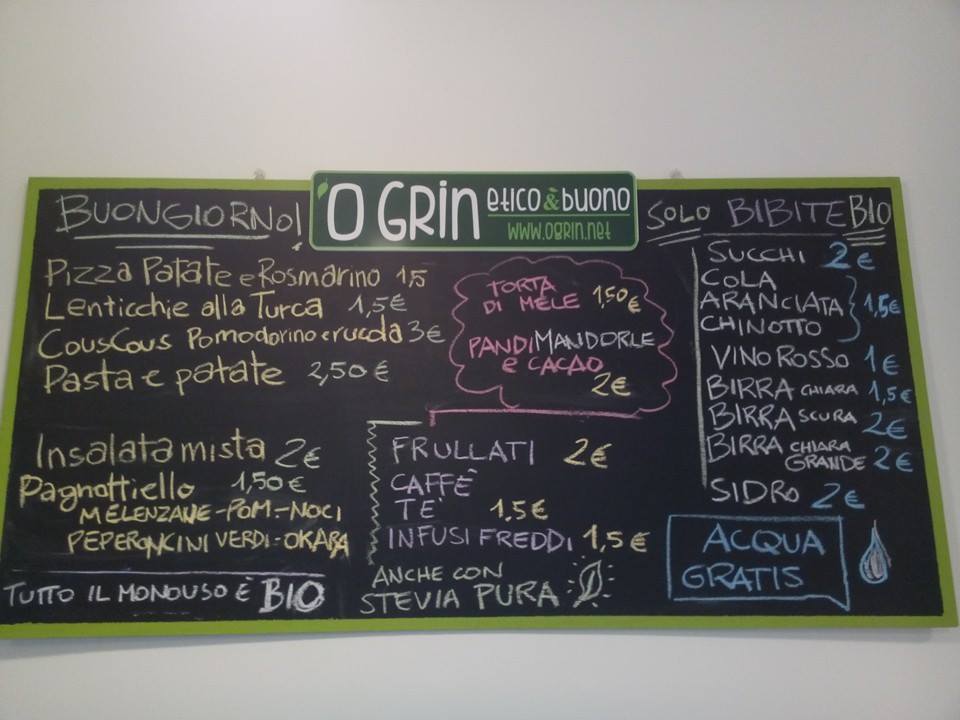 'O GRIN etico & buono
www.ogrin.net
BUONGIORNO!
Pizza Patate e Rosmarino 1,5
Lenticchie alla Turca 1,5€
CousCous Pomodorino e rucola 3€
Pasta e patate 2,50€
Insalata mista 2€
Pagnottiello 1,50€
MELENZANE-POM-NOCI
PEPERONCINI VERDI-OKARA
TUTTO IL MONOUSO È BIO
TORTA
DI MELE 1,50€
PANDIMANDORLE
e CACAO
2€
FRULLATI 2€
CAFFÈ
TE' 1,5€
INFUSI FREDDI 1,5€
ANCHE CON
STEVIA PURA
SOLO BIBITE BIO
SUCCHI 2€
COLA
ARANCIATA 1,5€
CHINOTTO
VINO ROSSO 1€
BIRRA CHIARA 1,5€
BIRRA SCURA 2€
BIRRA CHIARA
GRANDE 2€
SIDRO 2€
ACQUA
GRATIS